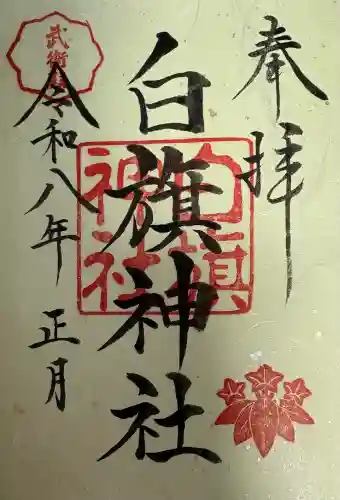 奉拝
白旗神社
令和八年 正月
白旗
神社